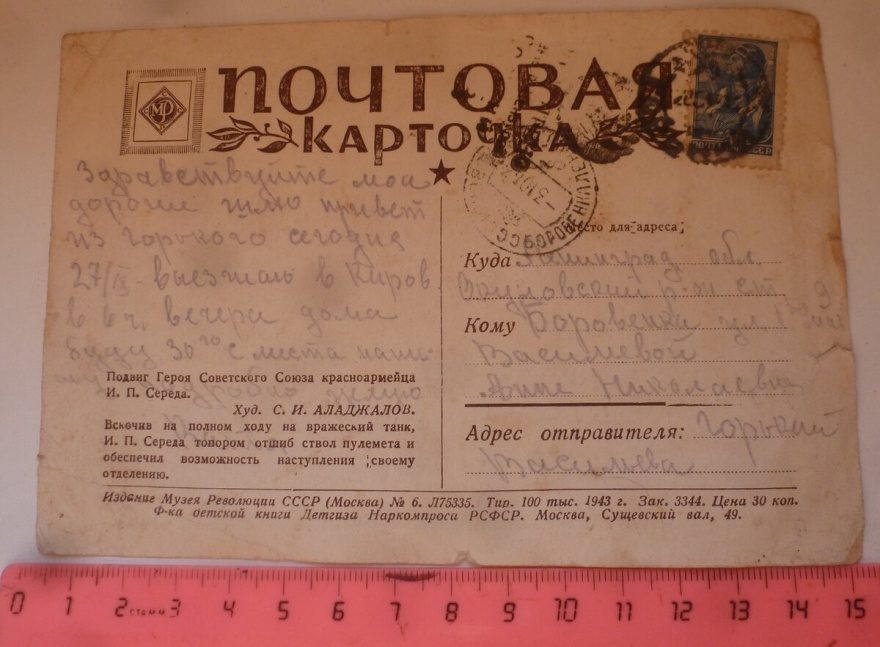 ПОЧТОВАЯ
КАРТОЧКА
МР
Здравствуйте мои
дорогие шлю привет
из Горького сегодня
27/IX выезжаю в Киров
в 6 ч. вечера дома
буду 30го с места
подробно
Подвиг Героя Советского Союза красноармейца
И. П. Середа.
Худ. С. И. АЛАДЖАЛОВ.
Вскочив на полном ходу на вражеский танк,
И. П. Середа топором отшиб ствол пулемета и
обеспечил возможность наступления своему
отделению.
Место для адреса
Куда Ленинград обл.
Окуловский р-н ст
Кому Боровенка ул 1го мая 9
Васильевой
Анне Николаевне
Адрес отправителя: Горький
Васильева
ПОЧТА СССР
Издание Музея Революции СССР (Москва) № 6. Л75335. Тир. 100 тыс. 1943 г. Зак. 3344. Цена 30 коп.
Ф-ка детской книги Детгиза Наркомпроса РСФСР. Москва, Сущевский вал, 49.
0 1 2 3 4 5 6 7 8 9 10 11 12 13 14 15